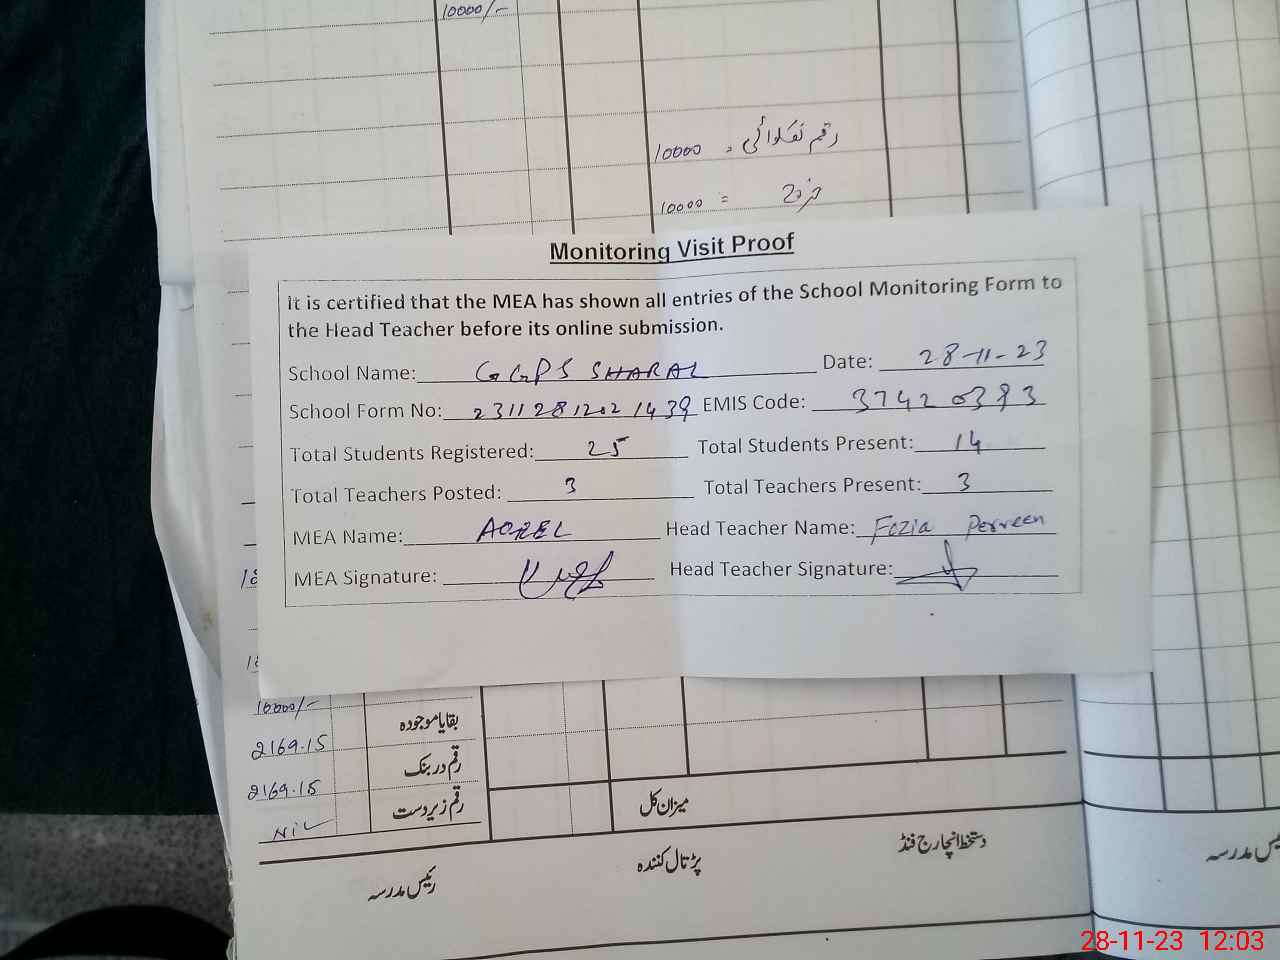 10000/-
رقم نکلوائی = 10000
خرچ = 10000
Monitoring Visit Proof
It is certified that the MEA has shown all entries of the School Monitoring Form to
the Head Teacher before its online submission.
School Name: GGPS SHARAL Date: 28-11-23
School Form No: 2311281202 1439 EMIS Code: 37420383
Total Students Registered: 25 Total Students Present: 14
Total Teachers Posted: 3 Total Teachers Present: 3
MEA Name: Head Teacher Name: Fozia Perveen
MEA Signature: Head Teacher Signature:
10000/-
بقایا موجودہ 2169.15
رقم در بنک 2169.15
رقم زیر دست Nil
میزان کل
رئیس مدرسہ پڑتال کنندہ دستخط انچارج فنڈ
28-11-23 12:03